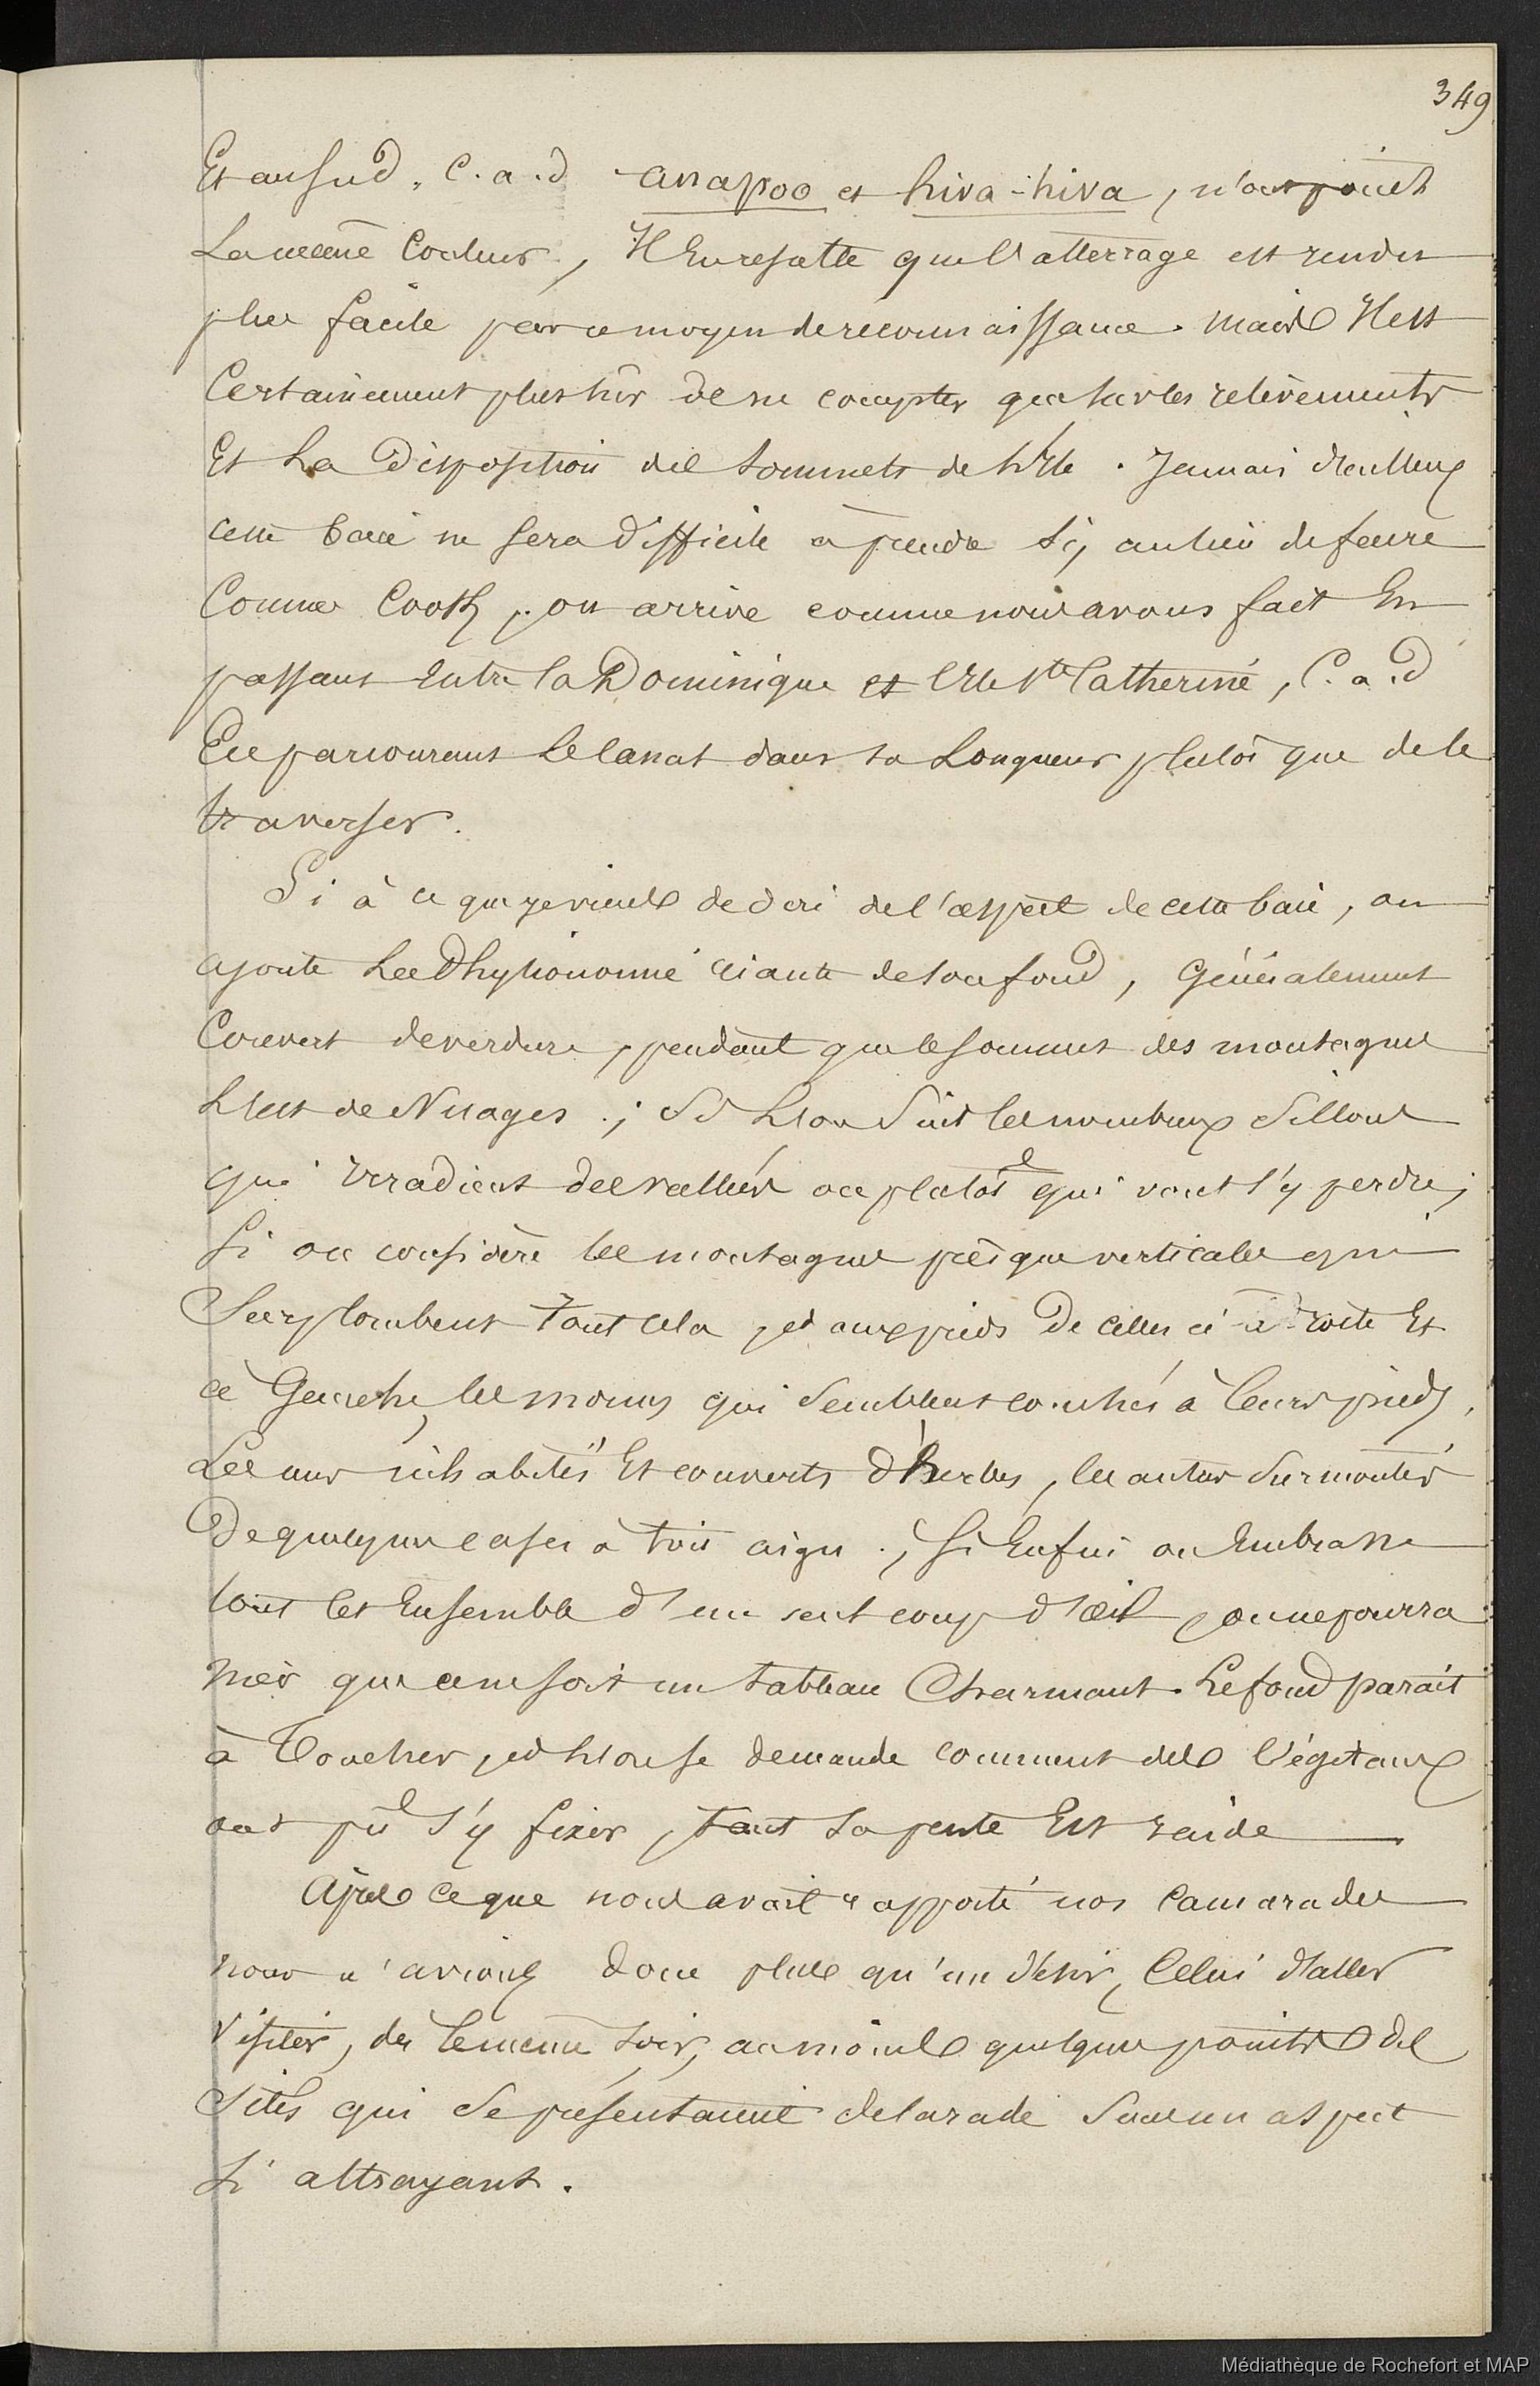 349
Et au sud, c. a. d anapoo et hiva-hiva, n'ont point
La même Couleur, Il En resulte que l'atterrage est rendu
plus facile par ce moyen de reconnaissance. mais Il est
Certainement plus sûr de ne compter que sur les relèvements
Et La Disposition des sommets de L'Ile. Jamais d'ailleurs
cette baie ne sera difficile à prendre si, au lieu de faire
Comme Cook, on arrive comme nous avons fait En
passant Entre la Dominique et l'Ile Ste Catherine, C. a. d
En parcourant Le Canal dans sa Longueur plutôt que de le
traverser.
Si à ce que je viens de dire de l'aspect de cette baie, on
ajoute La Physionomie riante de son fond, Généralement
Couvert de verdure, pendant que le sommet des montagnes
L'est de Nuages ; Si L'on Suit les nombreux Sillons
qui irradient des vallées ou plutôt qui vont s'y perdre ;
Si on considère les montagnes presque verticales qui
Surplombent tout cela, et aux pieds de celles ci à droite Et
à Gauche, les mornes qui Semblent couchés à leurs pieds,
Les uns inhabités Et couverts d'herbes, les autres Surmontés
De quelques cases à toit aigu ; Si Enfin on Embrasse
tout cet Ensemble d'un seul coup d'œil, on ne pourra
nier que ce ne soit un tableau Charmant. Le fond parait
à Toucher, et L'on se demande comment des Végétaux
ont pû s'y fixer, tant sa pente Est raide
Après ce que nous avait rapporté nos Camarades
nous n'avions donc plus qu'un désir, Celui d'aller
Visiter, dès le même soir, au moins quelques points des
Sites qui Se présentaient de la rade Sous un aspect
Si attrayant.
Médiathèque de Rochefort et MAP